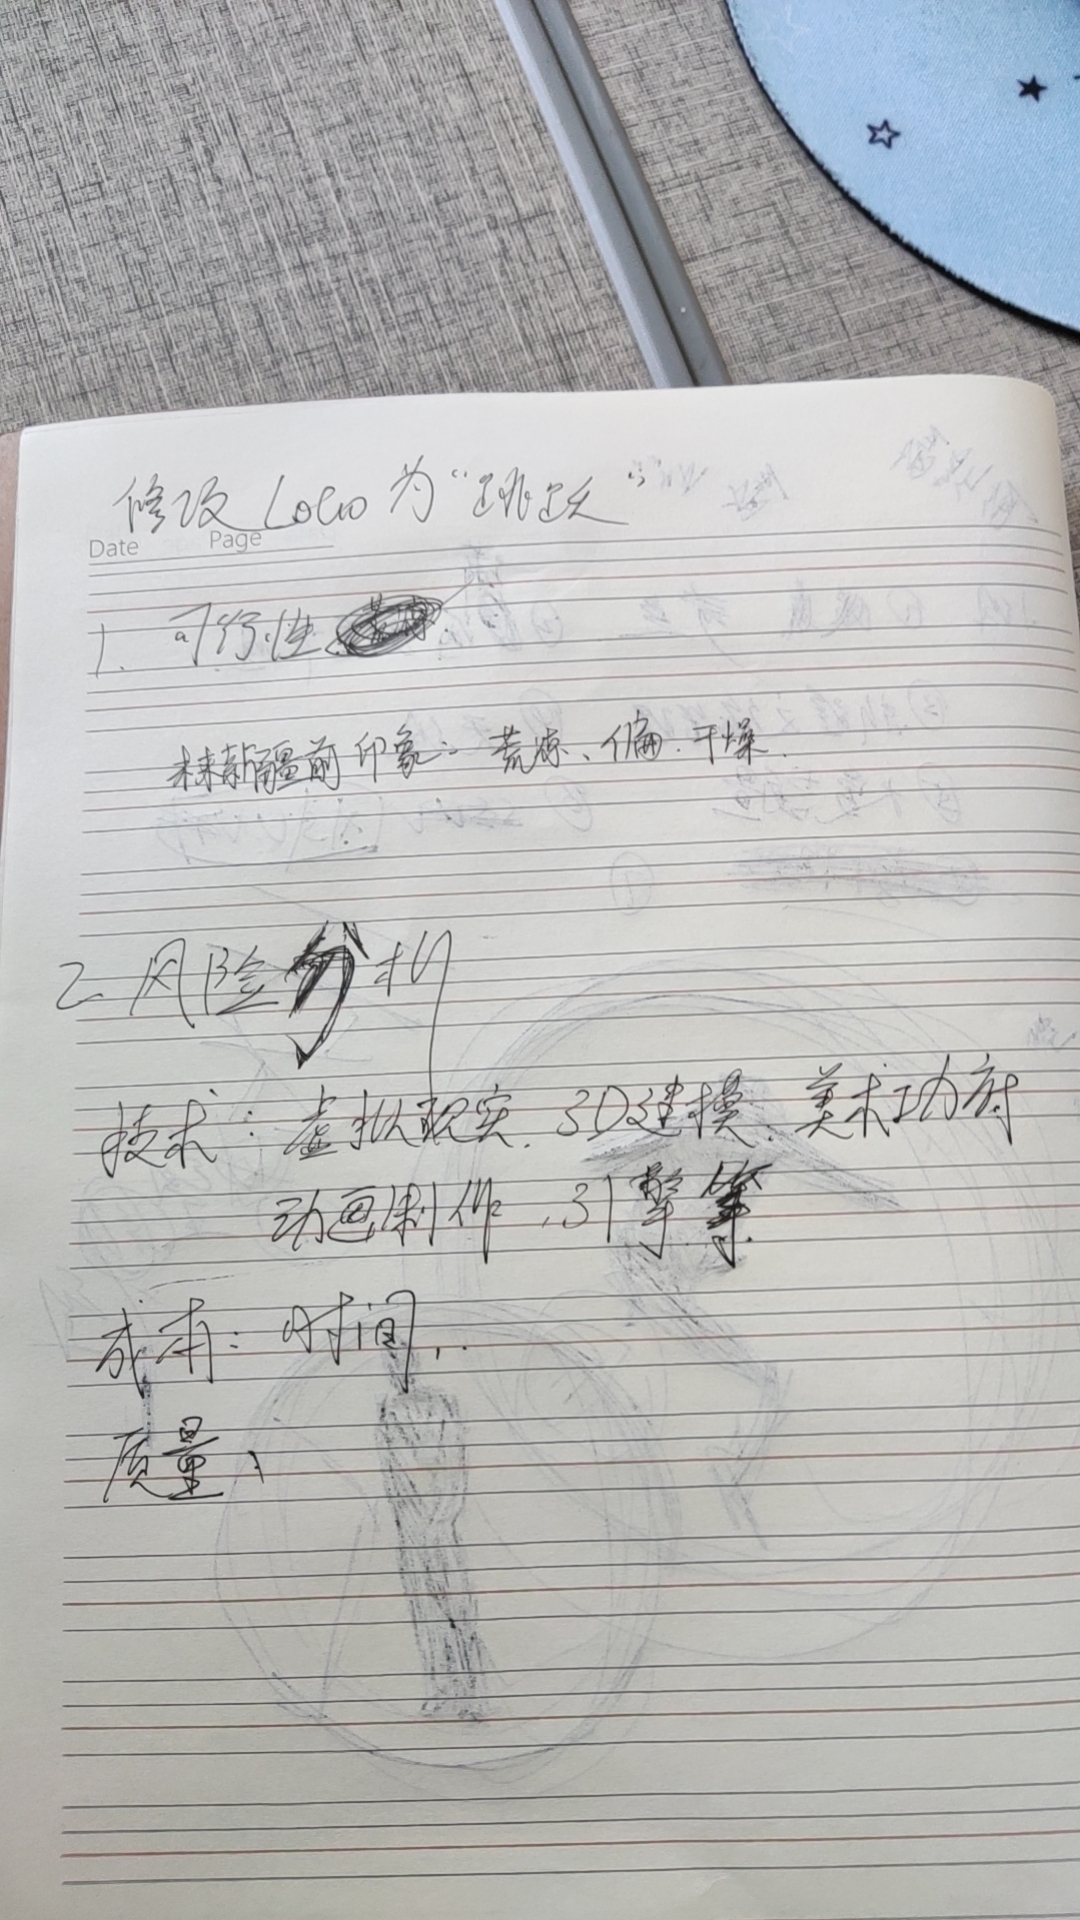 修改 LOGO 为“跳跃”
Date Page
1. 可行性
未来新疆前印象:荒凉、偏、干燥.
2. 风险分析
技术:虚拟现实、3D建模、美术功府
动画制作、引擎等
成本:时间...
质量、